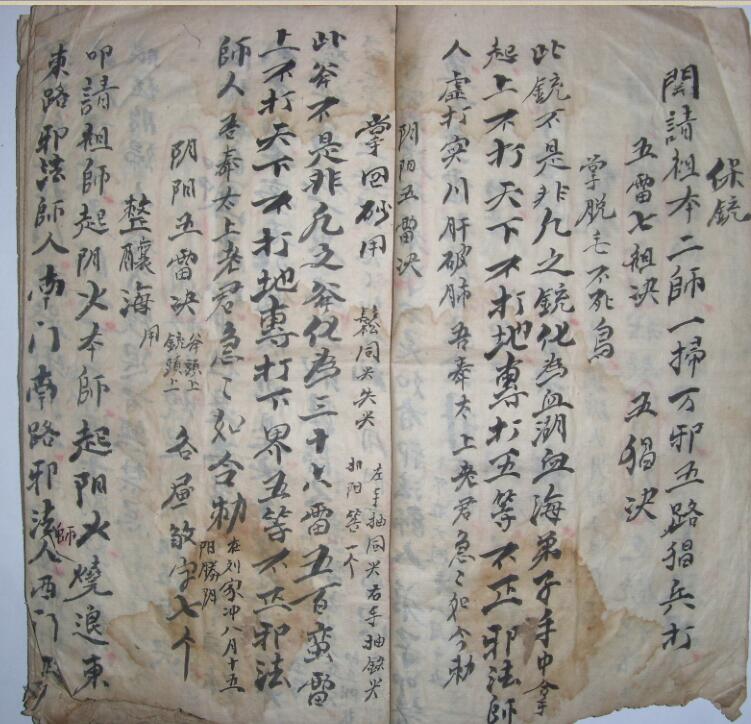 保銃
開請祖本二師一掃万邪五路猖兵打
五雷七祖決 五猖決
掌脱毛不死鳥
此銃不是非凡之銃化為血湖血海弟子手中拿
起上不打天下不打地專打五等不正邪法師
人虛打实川肝破肺吾奉太上老君急〻如令勅
阴阳五雷決
掌 砂用
左手抽同 右手抽
一个
此斧不是非凡之斧化為三十六雷五百蛮雷
上不打天下不打地專打下界五等不正邪法
師人吾奉太上老君急〻如令勅 在刘家冲八月十五
阳勝阴
阴阳五雷決 斧頭上 銃頭上 各 字七个
整 海用
叩請祖師起阴火本師起阳火燒退東
東路邪法師人南门南路邪法師人西门